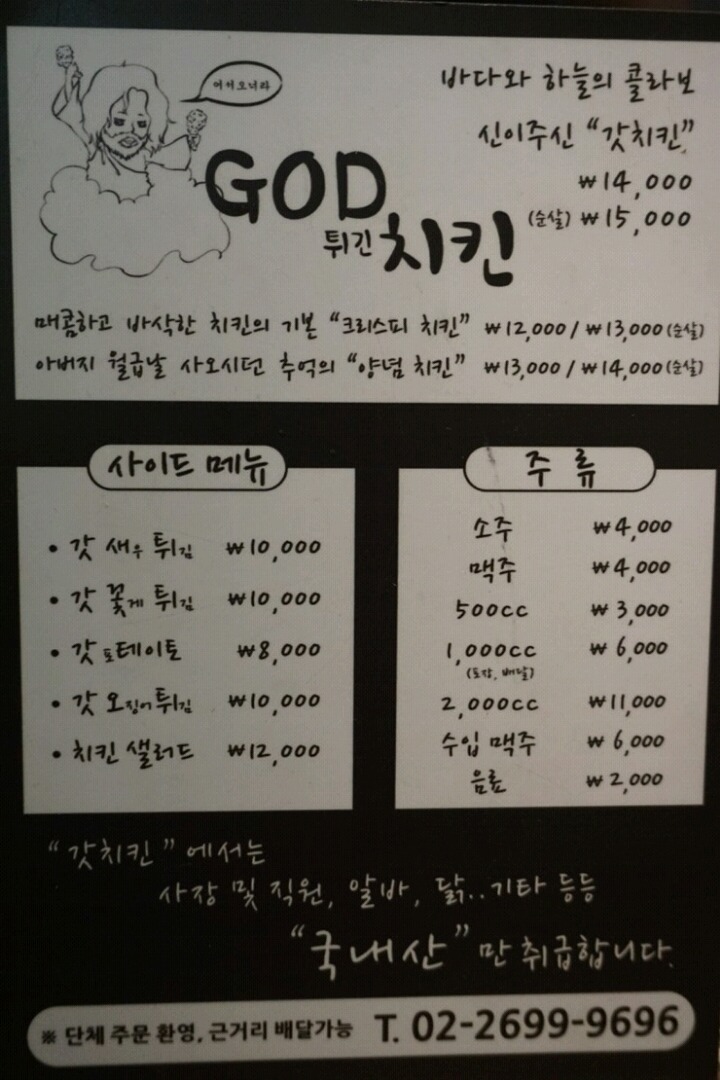 어서오너라
바다와 하늘의 콜라보
신이주신 "갓치킨"
₩14,000
(순살) ₩15,000
GOD
튀긴 치킨
매콤하고 바삭한 치킨의 기본 "크리스피 치킨" ₩12,000 / ₩13,000 (순살)
아버지 월급날 사오시던 추억의 "양념 치킨" ₩13,000 / ₩14,000 (순살)
사이드 메뉴
• 갓 새우 튀김 ₩10,000
• 갓 꽃게 튀김 ₩10,000
• 갓 포테이토 ₩8,000
• 갓 오징어 튀김 ₩10,000
• 치킨 샐러드 ₩12,000
주류
소주 ₩4,000
맥주 ₩4,000
500cc ₩3,000
1,000cc ₩6,000
(포장, 배달)
2,000cc ₩11,000
수입 맥주 ₩6,000
음료 ₩2,000
"갓치킨" 에서는
사장 및 직원, 알바, 닭..기타 등등
"국내산" 만 취급합니다.
※ 단체 주문 환영, 근거리 배달가능 T. 02-2699-9696